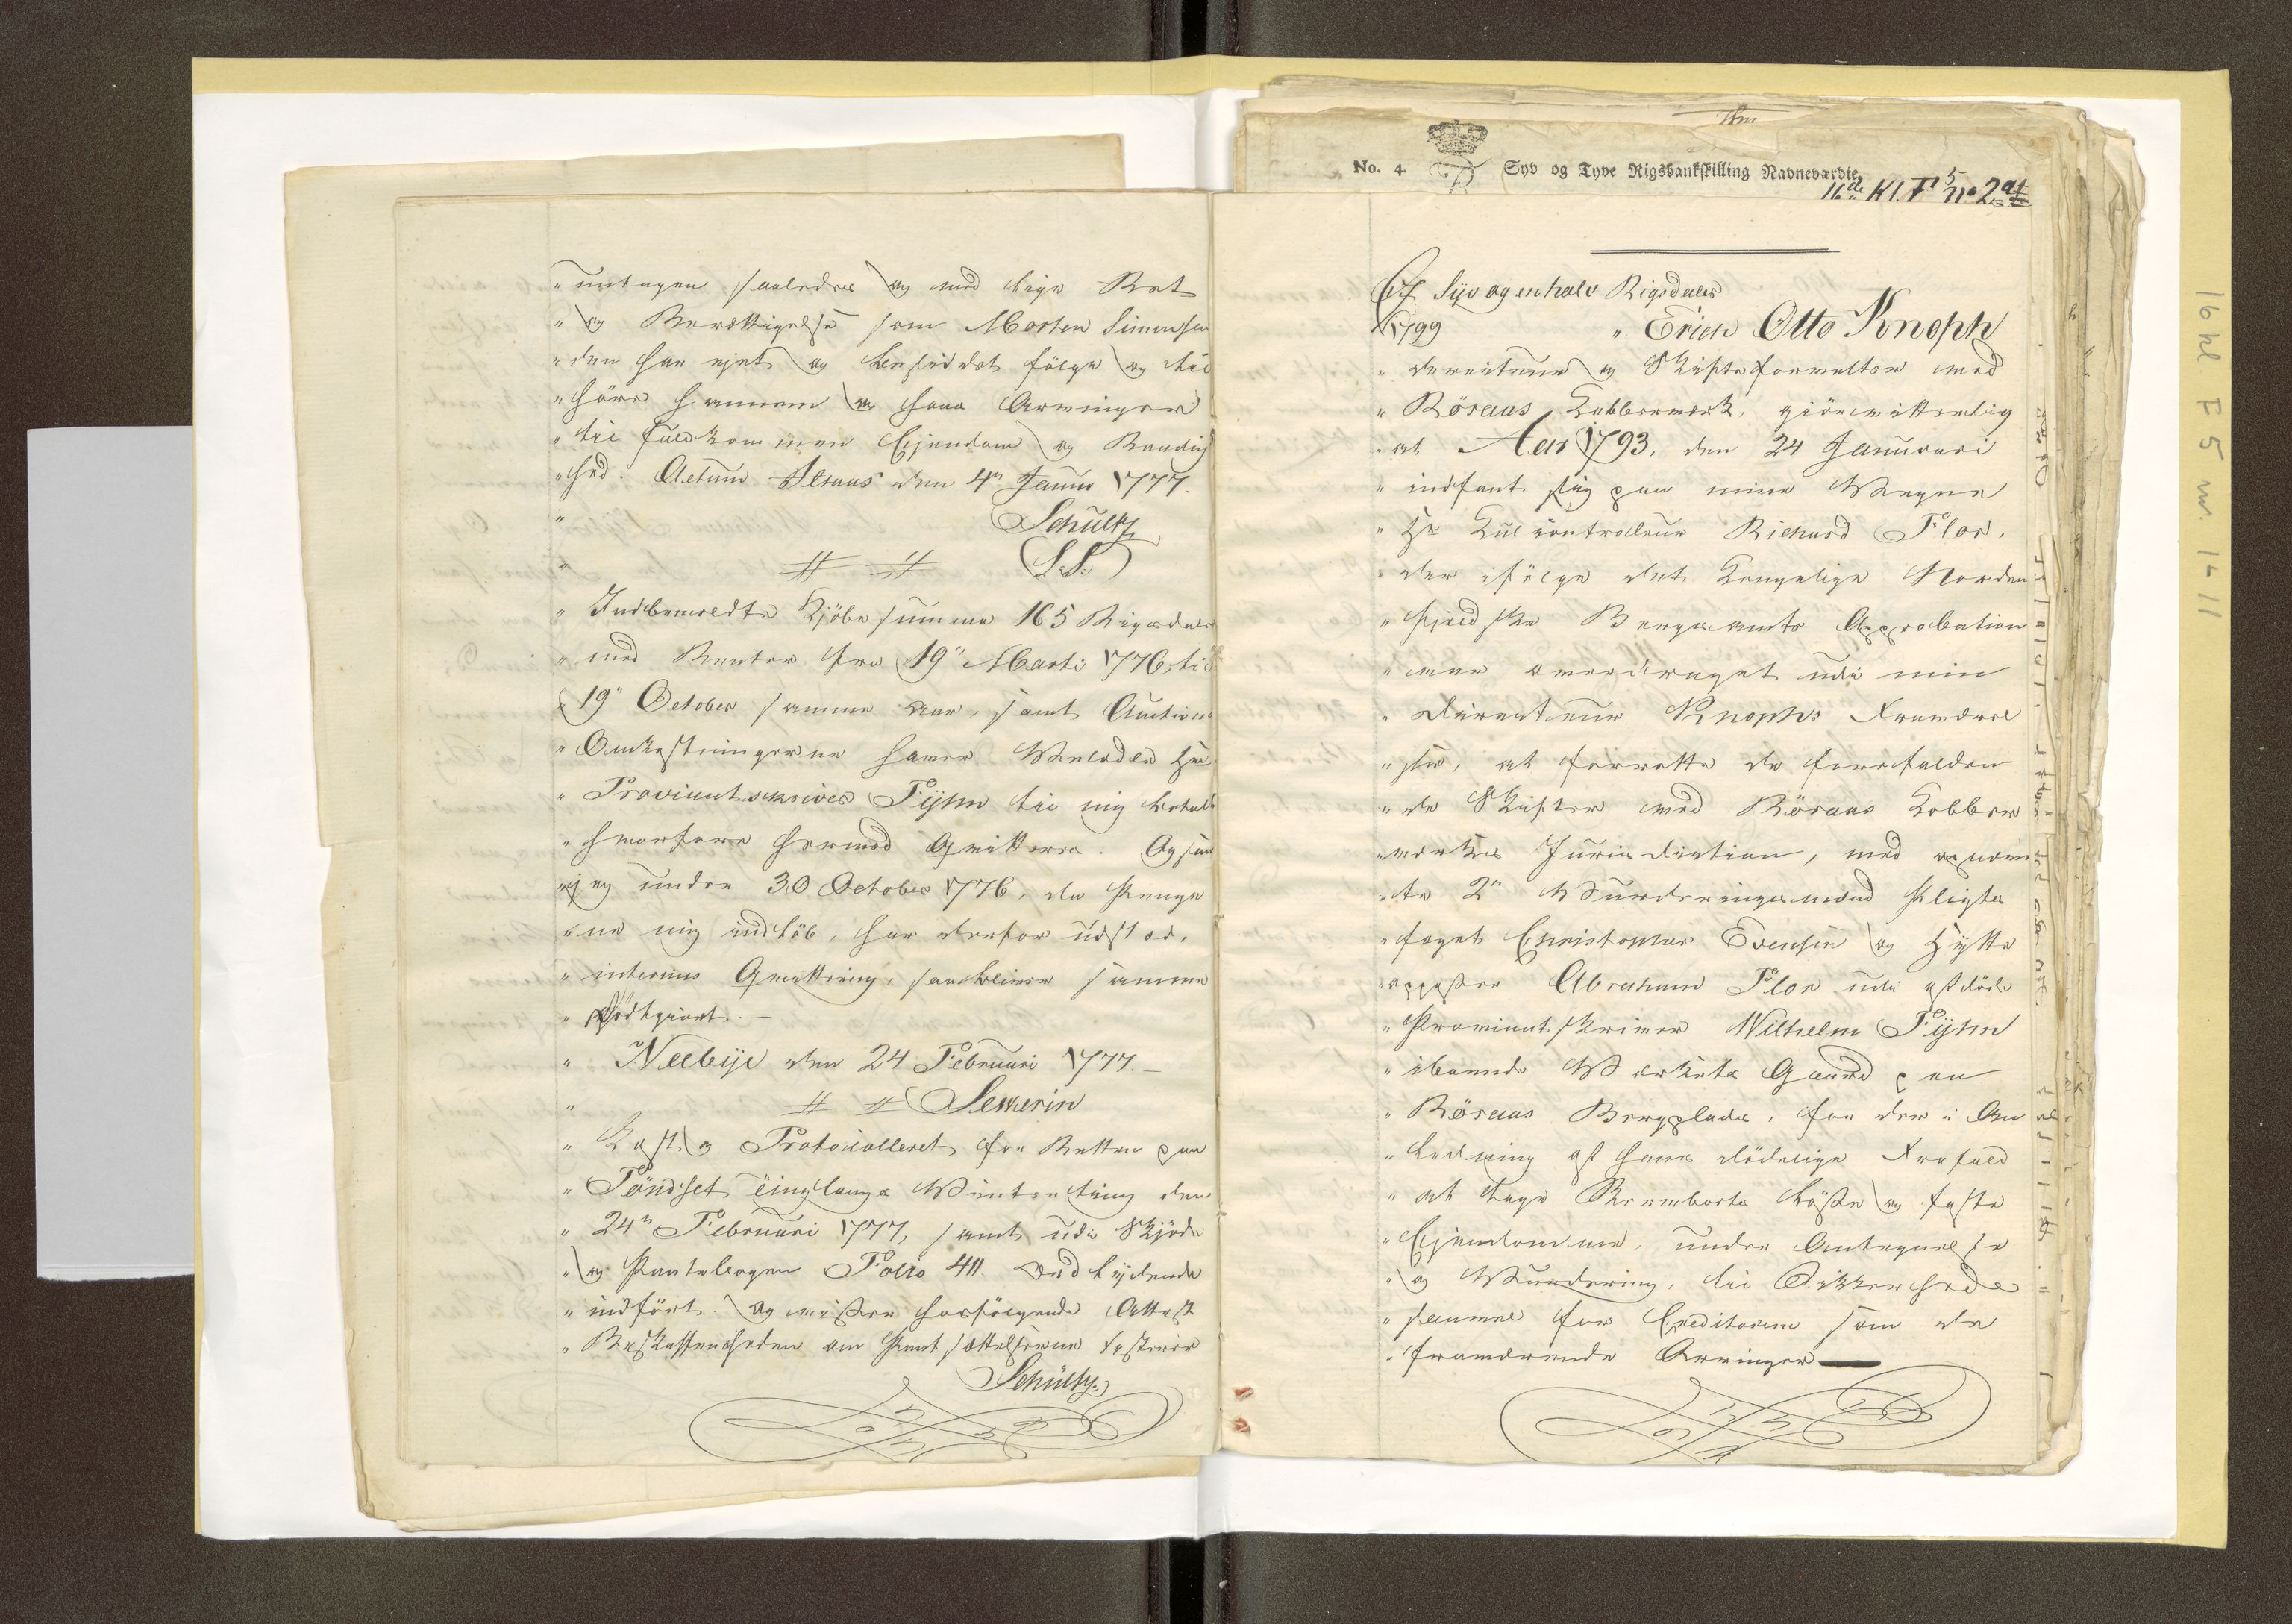 " undtagen saaledes og med lige Ret
" og Berettigelse som Morten Simensen
" den har ejet og besiddet følge og til
" høre hannem og hans Arvinger
" til fuldkommen Ejendom og Raadig
" hed. Actum Aaraas den 4de Janu 1777.
" Schultz
" (L.S.)
" Indbemeldte Kjøbesumma 165 Rigsdaler
" med Renter fra 19" Marti 1776, til
" 19" October samme Aar, samt Auctions
" Omkostningerne haver Hr
" Proviantskriver Fyhn til mig betalt
" hvorfore hermed Qvitteres. Og som
" jeg under 30 October 1776, da Penge
" ne mig indløb, har derfor udstæd,
" interims Qvittering, saa bliver samme
" dødgiort.—
" Neebye den 24 Februari 1777.—
" Sewerin
" Læst og Protocolleret for Retten paa
" Töndset Tinglaugs Winterting den
" 24de Februari 1777, samt udi Skjøde
" og Pantebogen Folio 411. Ord lydende
" indført. Og viser hosfølgende Attest
" Beskaffenheden om Pantsættelserne
Schultz
No. 4. Syv og Tyve Rigsbankskilling Navneværdie
16de Kl. F 5 No 2
Cf Syv og en halv Rigsdaler
1799
" Erich Otto Knoph
" Directeur og Skifteforvalter ved
" Röraas Kobberværk, giör vitterlig
" at Aar 1793, den 24 Januari
" indfant sig paa mine Vegne
" Hr Kulcontrolleur Richard Flor,
" der ifølge det Kongelige Norden
" fjeldske Bergamts Approbation
" var overdraget udi min
" Directeur Knophs Fraværel
" se, at forrette de forefalden
" de Skifter ved Röraas Kobber
" værks Jurisdiction, med
" te 2de Vurderingsmænd Pligts
" foget Christopher Evensen og Hytte
" Abraham Flor udi afdøde
" Proviantskriver Wilhelm Fyhn
" iboende Værkets Gaard paa
" Röraas Bergplads, for der i An
" ledning af hans dødelige Frafald
" at tage Rørende løse og faste
" Ejendomme, under Antegnelse
" og Vurdering, til Sikkerhed
" saavel for Creditorerne som de
" fraværende Arvinger
16 kl F 5 nr. 1-11